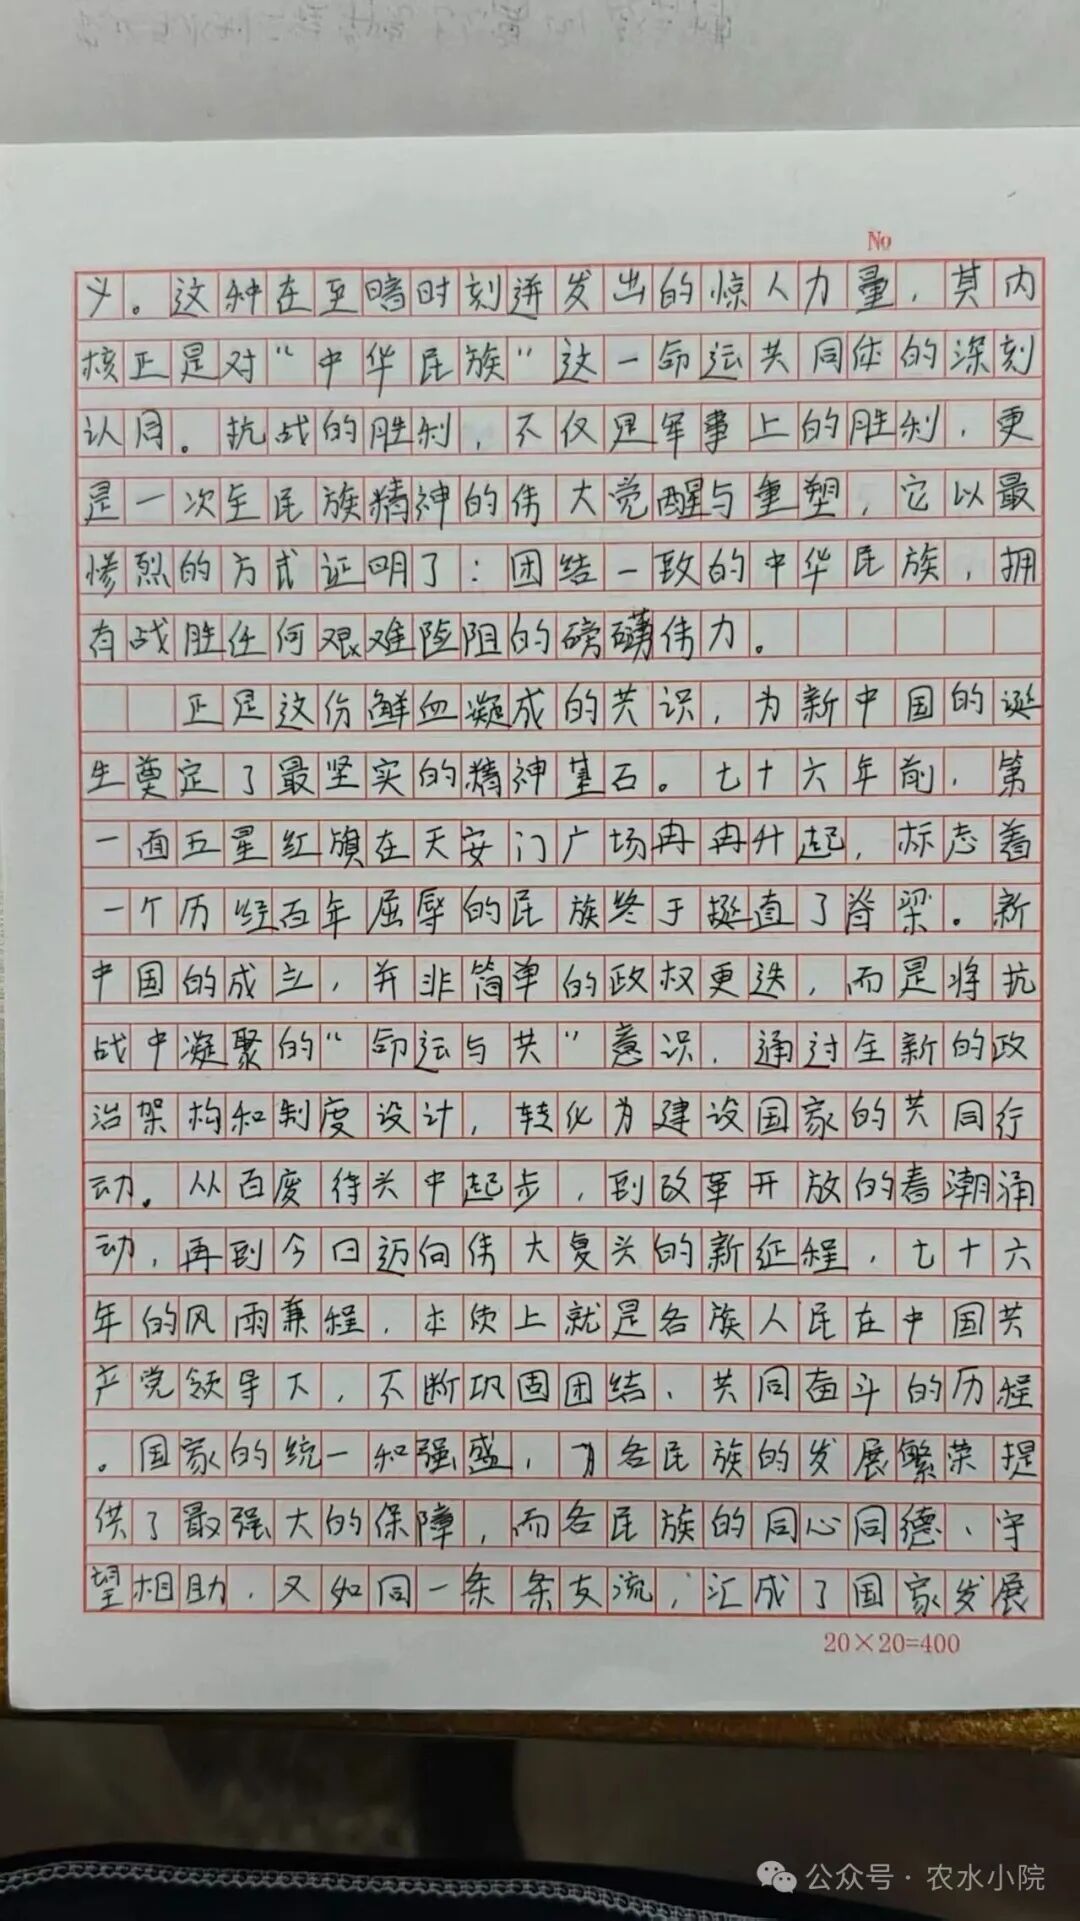 No
义。这种在至暗时刻迸发出的惊人力量，其内
核正是对“中华民族”这一命运共同体的深刻
认同。抗战的胜利，不仅是军事上的胜利，更
是一次全民族精神的伟大觉醒与重塑，它以最
惨烈的方式证明了：团结一致的中华民族，拥
有战胜任何艰难险阻的磅礴伟力。
正是这份鲜血凝成的共识，为新中国的诞
生奠定了最坚实的精神基石。七十六年前，第
一面五星红旗在天安门广场冉冉升起，标志着
一个历经百年屈辱的民族终于挺直了脊梁。新
中国的成立，并非简单的政权更迭，而是将抗
战中凝聚的“命运与共”意识，通过全新的政
治架构和制度设计，转化为建设国家的共同行
动。从百废待兴中起步，到改革开放的春潮涌
动，再到今日迈向伟大复兴的新征程，七十六
年的风雨兼程，本质上就是各族人民在中国共
产党领导下，不断巩固团结、共同奋斗的历程
。国家的统一和强盛，为各民族的发展繁荣提
供了最强大的保障，而各民族的同心同德、守
望相助，又如同一条条支流，汇成了国家发展
20×20=400
公众号·农水小院